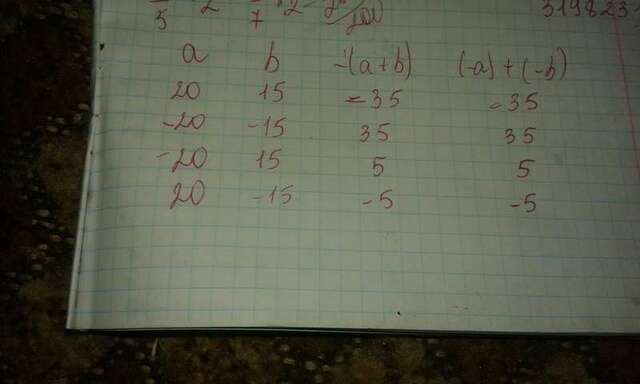 a b -(a+b) (-a)+(-b)
20 15 -35 -35
-20 -15 35 35
-20 15 5 5
20 -15 -5 -5